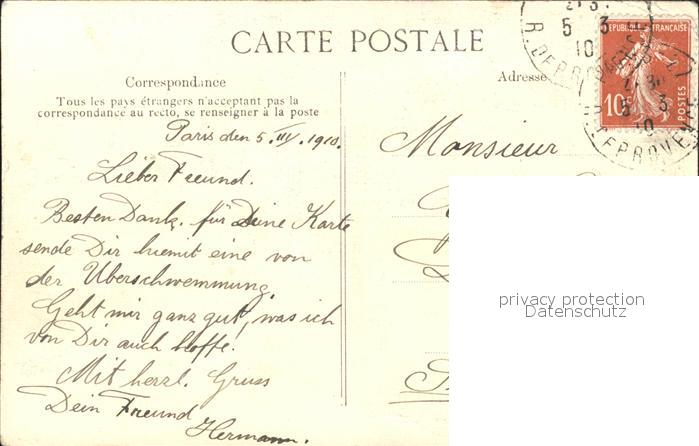 CARTE POSTALE
Correspondance
Tous les pays étrangers n'acceptant pas la
correspondance au recto, se renseigner à la poste
Paris den 5. III. 1910.
Lieber Freund.
Besten Dank für Deine Karte
sende Dir hiemit eine von
der Überschwemmung.
Geht mir ganz gut, was ich
von Dir auch hoffe.
Mit herzl. Gruss
Dein Freund
Hermann.
Adresse
Monsieur
REPUBLIQUE FRANÇAISE
10c
POSTES
5 3
10
R. DE PROVENCE
privacy protection
Datenschutz